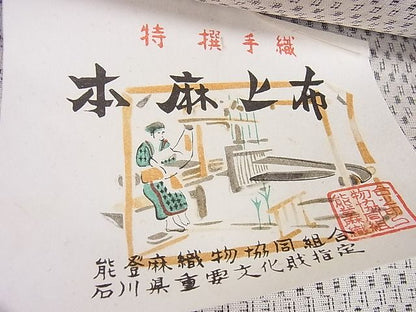 特撰手織
本麻上布
能登麻織物協同組合
石川県重要文化財指定